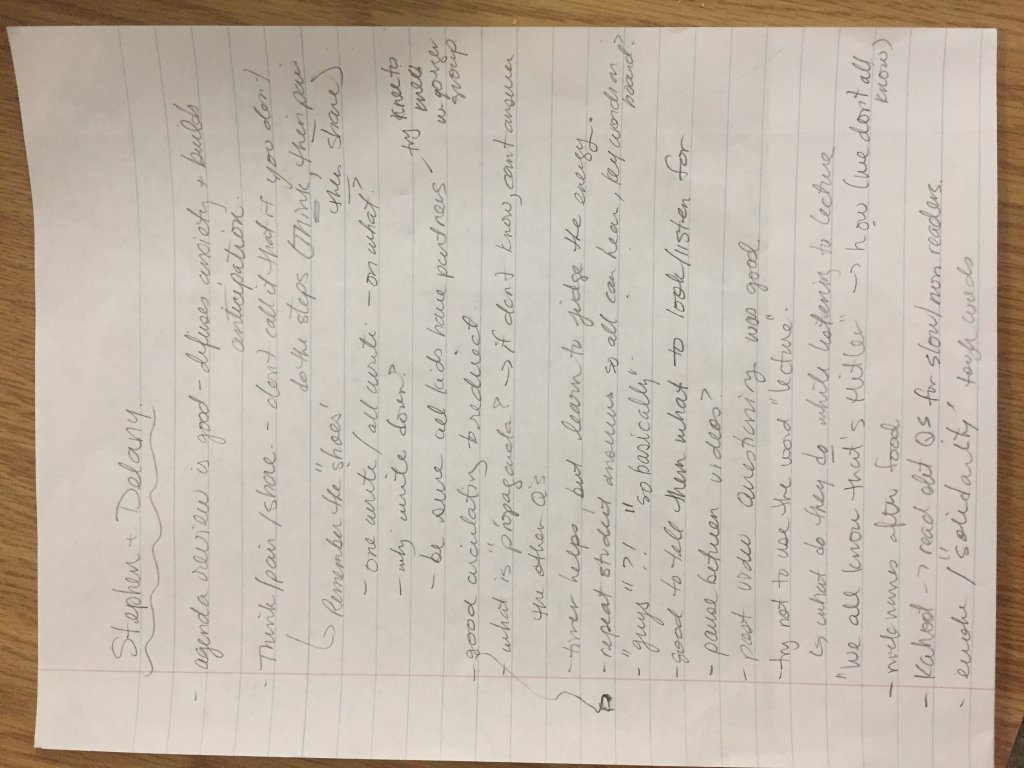 Stephen + Delany
- agenda review is good - defuses anxiety + builds
anticipation
- Think/pair/share - don't call it that if you don't
do the steps (think, then pair
then share)
↳ Remember the "shoes"
- one write/all write - on what?
- why write down?
- be sure all kids have partners / try three to
meld
w young
group
- good circulating to redirect
- what is "propaganda"? → if don't know, can't answer
the other Qs
- timer helps, but learn to judge the energy.
- repeat student answers so all can hear, key words on
board?
- "guys"?! "so basically"
- good to tell them what to look/listen for
- pause between videos?
- post video questioning was good
- try not to use the word "lecture."
↳ what do they do while listening to lecture
"we all know that's Hitler" → how (we don't all
know)
- after food
- Kahoot → read alt Qs for slow/non readers.
- / "solidarity" tough words